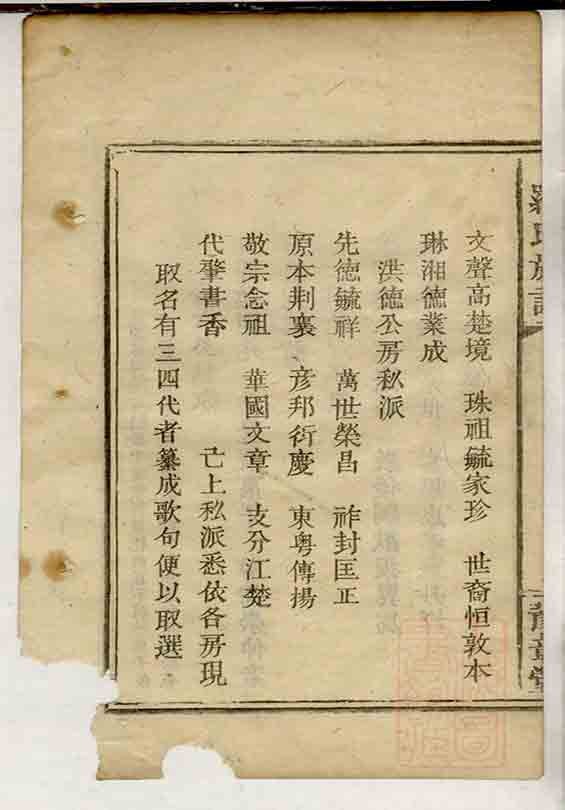 羅氏族譜
豫章堂
文聲高楚境　珠祖毓家珍　世裔恒敦本
琳湘德業成
洪德公房私派
先德毓祥　萬世榮昌　祚封匡正
原本荆襄　彦邦衍慶　東粤傳揚
敬宗念祖　華國文章　支分江楚
代肇書香　亡上私派悉依各房現
取名有三四代者纂成歌句便以取選